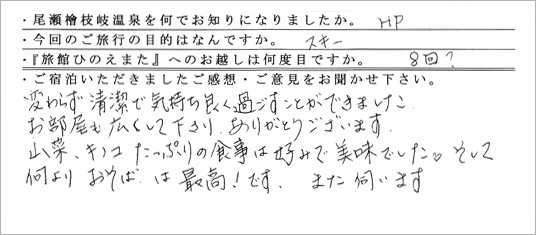 ・尾瀬檜枝岐温泉を何でお知りになりましたか。 HP
・今回のご旅行の目的はなんですか。 スキー
・『旅館ひのえまた』へのお越しは何度目ですか。 8回?
・ご宿泊いただきましたご感想・ご意見をお聞かせ下さい。
変わらず清潔で気持ち良く過ごすことができました
お部屋も広くして下さり、ありがとうございます。
山菜、キノコたっぷりの食事は好みで美味でした♡そして
何よりおそばは最高!です、また伺います